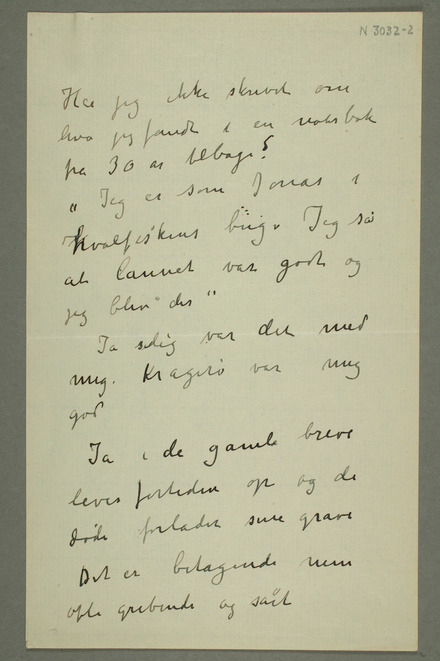 N 3032-2
Har jeg ikke skrevet om
hva jeg fandt i en notisbok
på 30 år tilbage?
„Jeg er som Jonas i
Hvalfiskens bug. Jeg så
at landet var godt og
jeg blev der"
Ja slig var det med
mig. Kragerø var mig
god
Ja i de gamle breve
leves fortiden op og de
døde forlader sine grave
Det er betagende men
ofte gribende og sårt